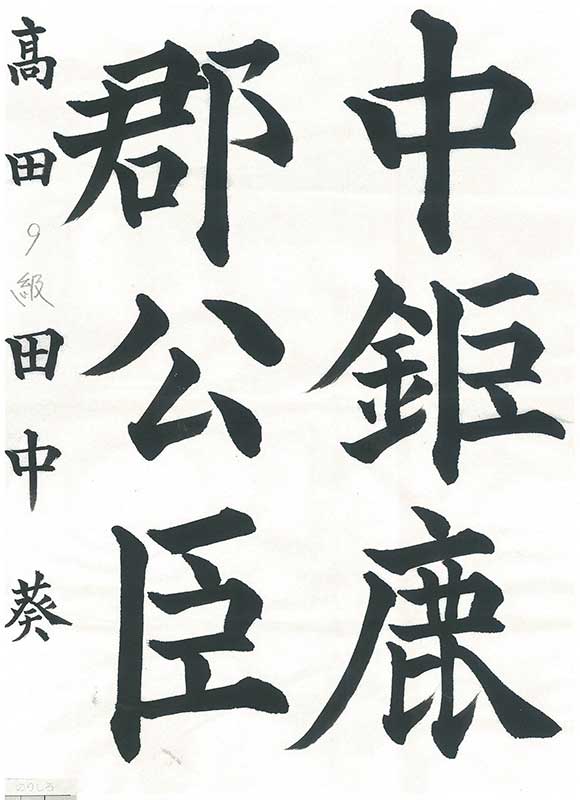 中鉅鹿
郡公臣
高田9級田中葵
のりしろ